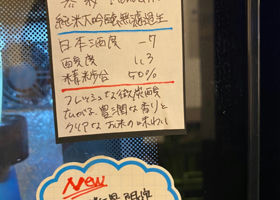 純米大吟醸無濾過生
日本酒度 -7
酸度 1.3
精米歩合 50%
フレッシュな微炭酸
広がる、豊潤な香りと
クリアなお米の味わい
New